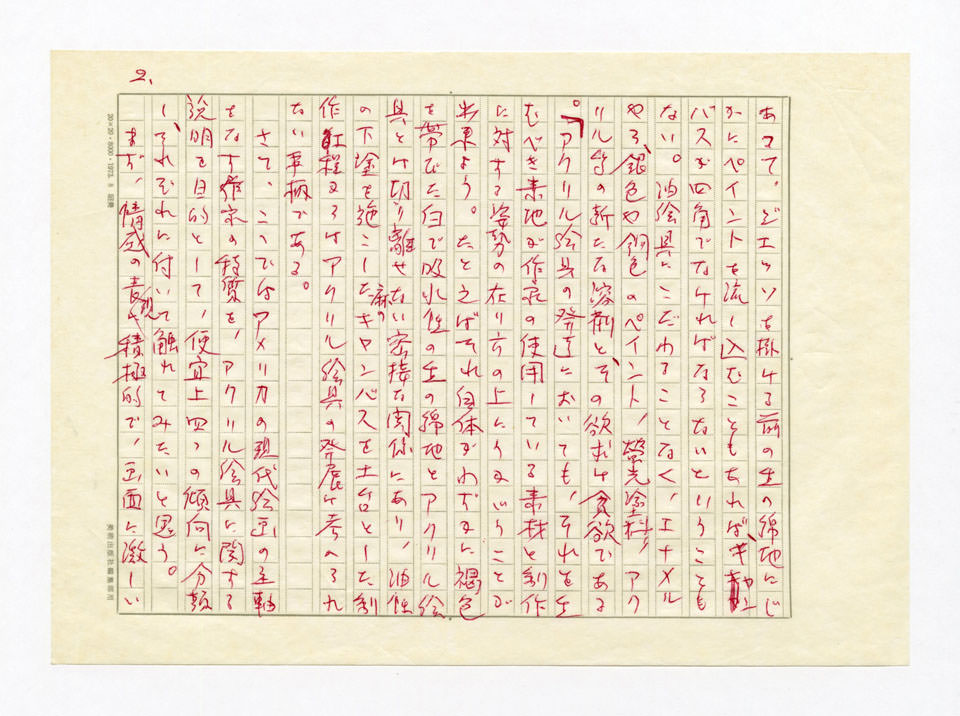 2.
あって、ジェッソを掛ける前の生の綿地にじ
かにペイントを流し込むこともあれば、キャン
バスが四角でなければならないということも
ない。油絵具にこだわることなく、エナメル
や、銀色や銅色のペイント、螢光塗料、アク
リル等の新たな溶剤と、その欲求は貪欲である
。アクリル絵具の発達においても、それを生
むべき素地が作家の使用している素材と制作
に対する姿勢の在り方の上にうかがうことが
出来よう。たとえばそれ自体がわずかに褐色
を帯びた白で吸水性の生の綿地とアクリル絵
具とは切り離せない密接な関係にあり、油性
の下塗を施こした麻のキャンバスを土台とした制
作工程からはアクリル絵具の発展は考へられ
ない事柄である。
さて、ここではアメリカの現代絵画の主軸
をなす作家の特質を、アクリル絵具に関する
説明を目的として、便宜上四つの傾向に分類
し、それぞれに付いて触れてみたいと思う。
まず、情感の表現積極的で、画面に激しい
20×20・8000・1973. 8
美術出版社編集部用